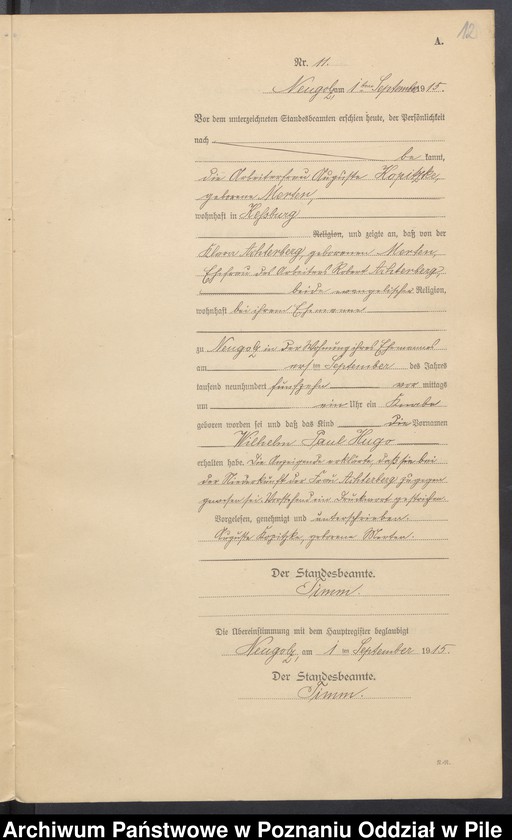 12
A.
Nr. 11.
Neugolz, am 1ten September 1915.
Vor dem unterzeichneten Standesbeamten erschien heute, der Persönlichkeit
nach
be kannt,
die Arbeiterfrau Auguste Kopitzke,
geborene Merten,
wohnhaft in Keßburg
Religion, und zeigte an, daß von der
Klara Achterberg, geborenen Merten,
Ehefrau des Arbeiters Robert Achterberg,
beide evangelischer Religion,
wohnhaft bei ihrem Ehemanne
zu Neugolz in der Wohnung ihres Ehemannes
am ersten September des Jahres
tausend neunhundert fünfzehn vor mittags
um ein Uhr ein Knabe
geboren worden sei und daß das Kind die Vornamen
Wilhelm Paul Hugo
erhalten habe. Die Anzeigende erklärte, daß sie bei
der Niederkunft der Frau Achterberg zugegen
gewesen sei. Vorstehend ein Druckwort gestrichen.
Vorgelesen, genehmigt und unterschrieben.
Auguste Kopitzke, geborene Merten.
Der Standesbeamte.
Timm.
Die Übereinstimmung mit dem Hauptregister beglaubigt
Neugolz, am 1 ten September 1915.
Der Standesbeamte.
Timm.
Archiwum Państwowe w Poznaniu Oddział w Pile